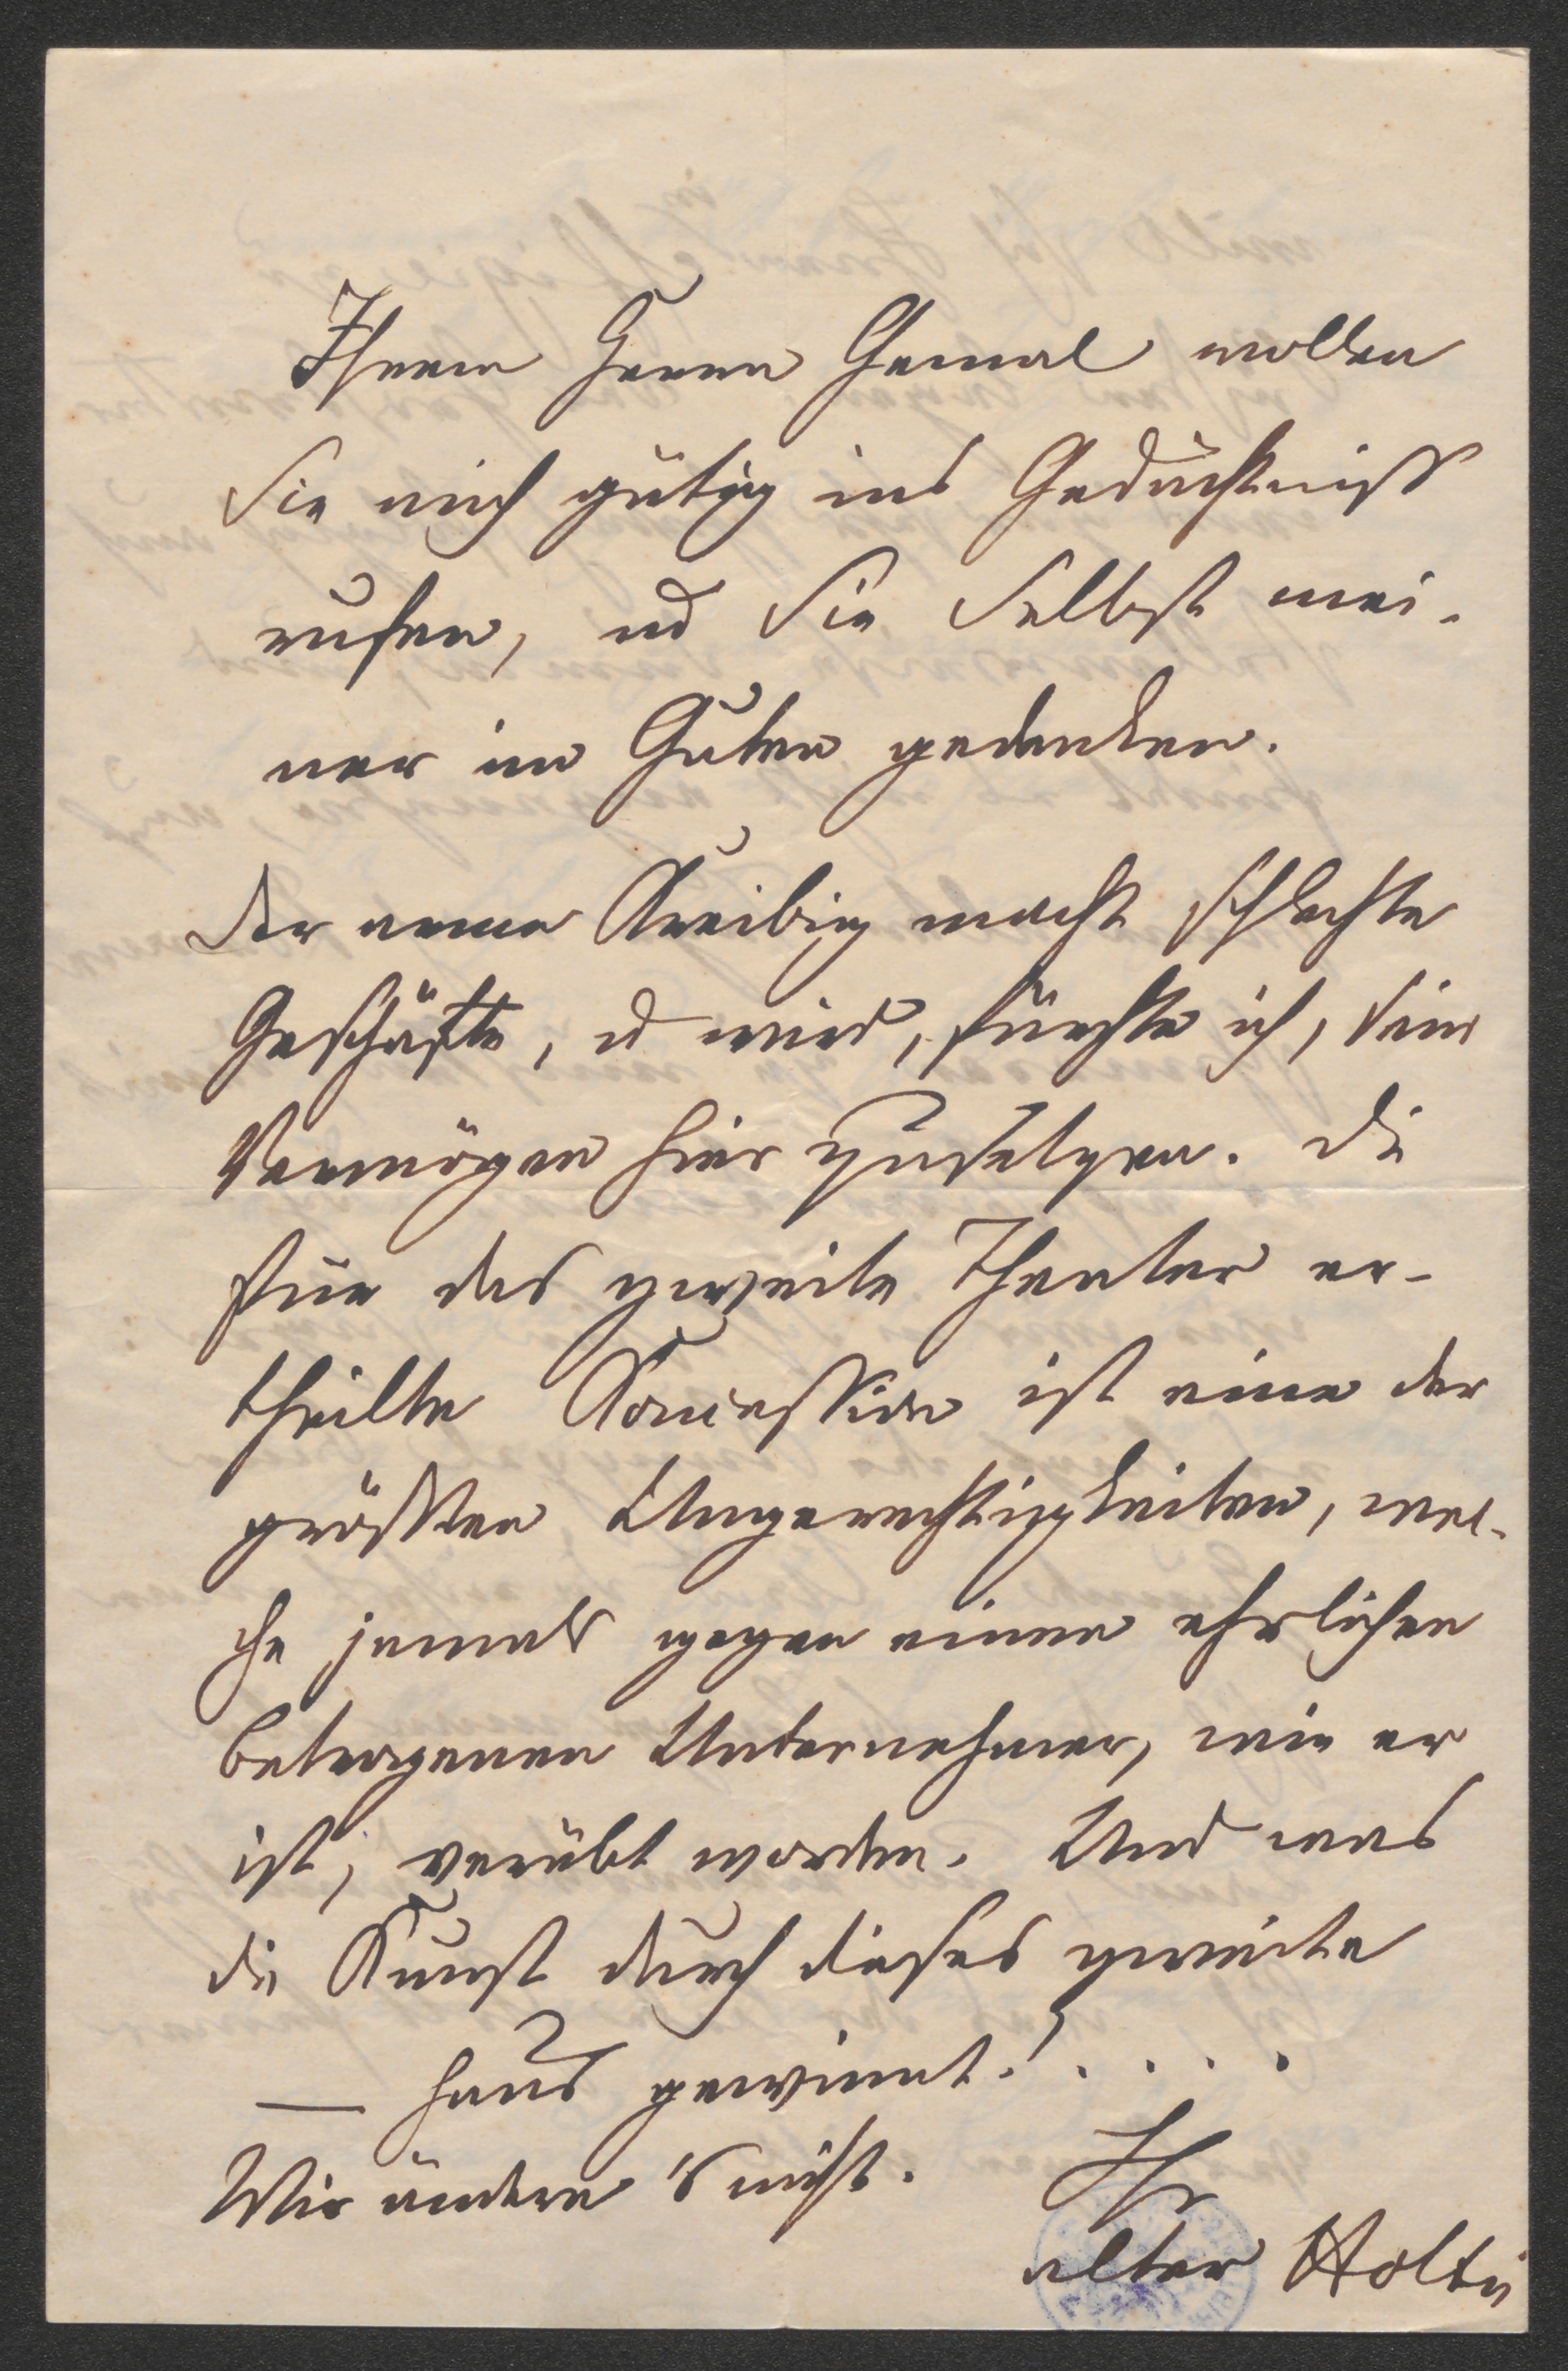 Ihrem Herrn Gemal wollen
Sie mich gütig ins Gedächtniß
rufen, ud Sie Selbst mei-
ner im Guten gedenken.
Der arme Kreibig macht schlechte
Geschäfte, ud wird, fürchte ich, sein
Vermögen hier zusetzen. Die
für das zweite Theater er-
theilte Koncession ist eine der
größten Ungerechtigkeiten, wel-
che jemals gegen einen ehrlichen
betrogenen Unternehmer, wie er
ist, verübt worden. Und was
die Kunst durch dieses zweite
— Haus gewinnt! . . . .
Wir ändern 's nicht. Ihr
alter Holtei